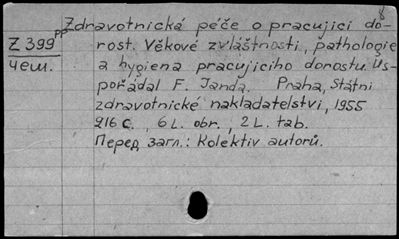 8
Zdravotnická péče o pracující do-
Z 399 rost. Věkové zvláštnosti, pathologie
чеш. a hygiena pracujícího dorostu. Us-
pořádal F. Janda. Praha, Státní
zdravotnické nakladatelství, 1955
216 с., 6 L. obr., 2 L. tab.
Перед загл.: Kolektiv autorů.